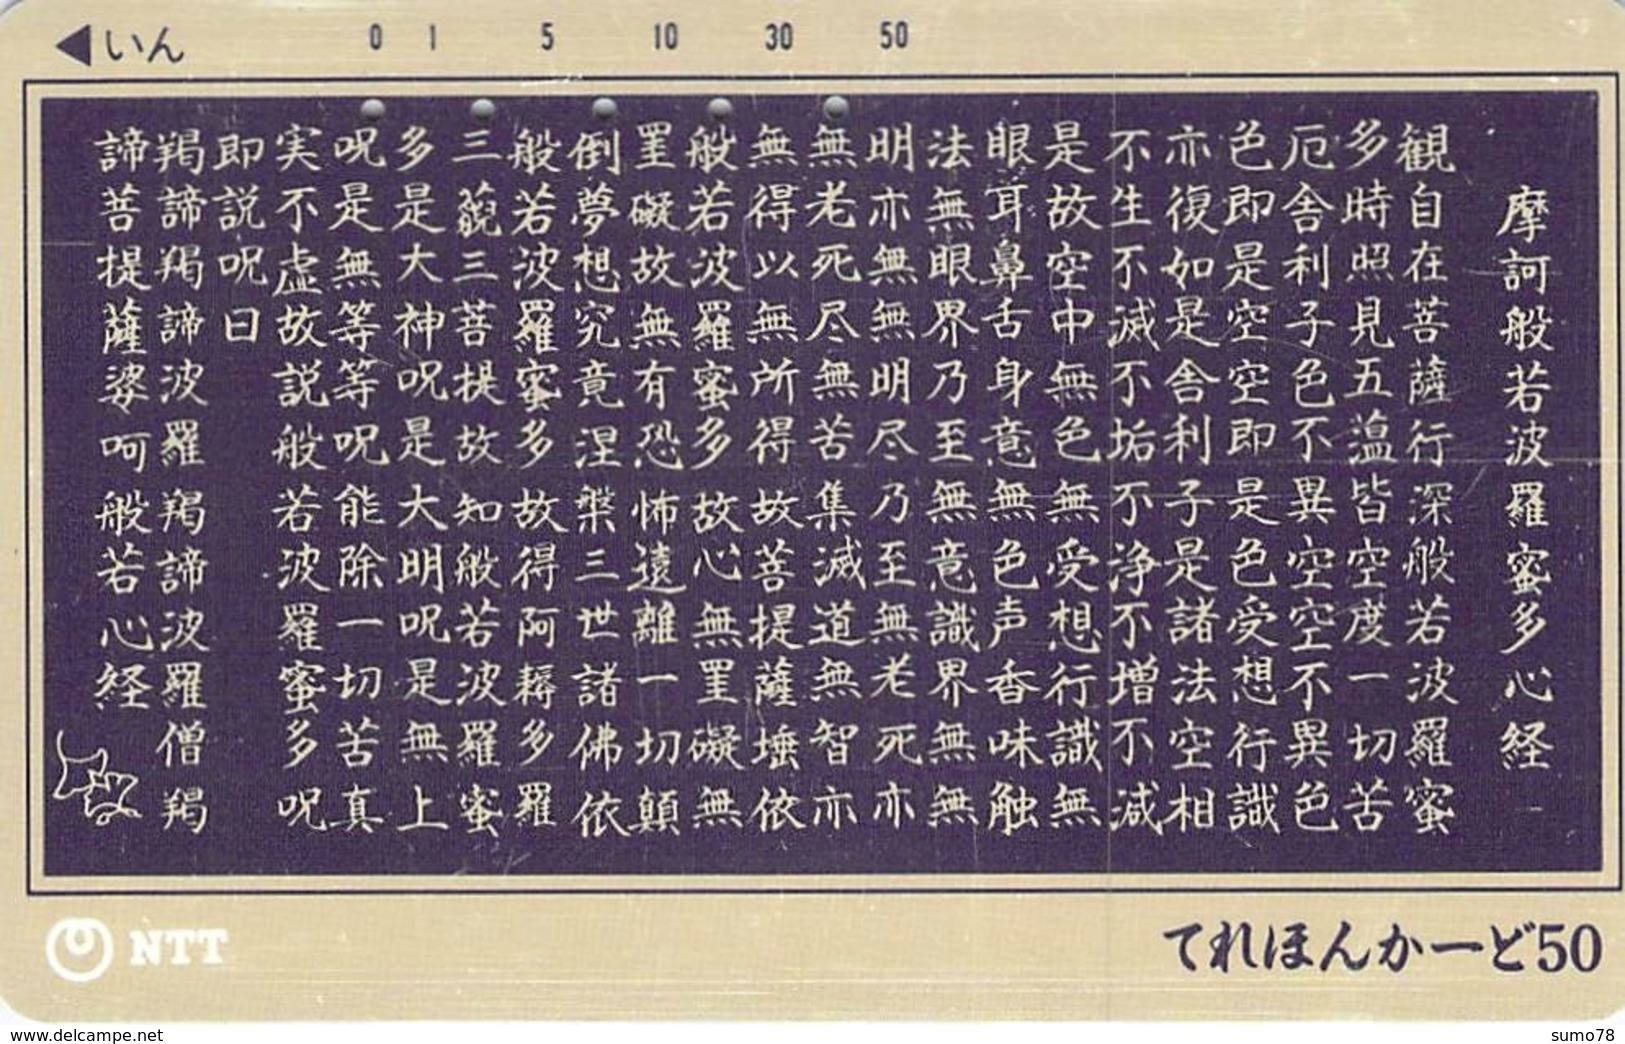 ◀いん 0 1 5 10 30 50
摩訶般若波羅蜜多心経
観自在菩薩行深般若波羅蜜
多時照見五薀皆空度一切苦
厄舎利子色不異空空不異色
色即是空空即是色受想行識
亦復如是舎利子是諸法空相
不生不滅不垢不浄不増不減
是故空中無色無受想行識無
眼耳鼻舌身意無色声香味触
法無眼界乃至無意識界無無
明亦無無明尽乃至無老死亦
無老死尽無苦集滅道無智亦
無得以無所得故菩提薩埵依
般若波羅蜜多故心無罣礙無
罣礙故無有恐怖遠離一切顛
倒夢想究竟涅槃三世諸佛依
般若波羅蜜多故得阿耨多羅
三藐三菩提故知般若波羅蜜
多是大神呪是大明呪是無上
呪是無等等呪能除一切苦真
実不虚故説般若波羅蜜多呪
即説呪曰
羯諦羯諦波羅羯諦波羅僧羯
諦菩提薩婆呵般若心経
NTT
てれほんかーど50
www.delcampe.net
sumo78